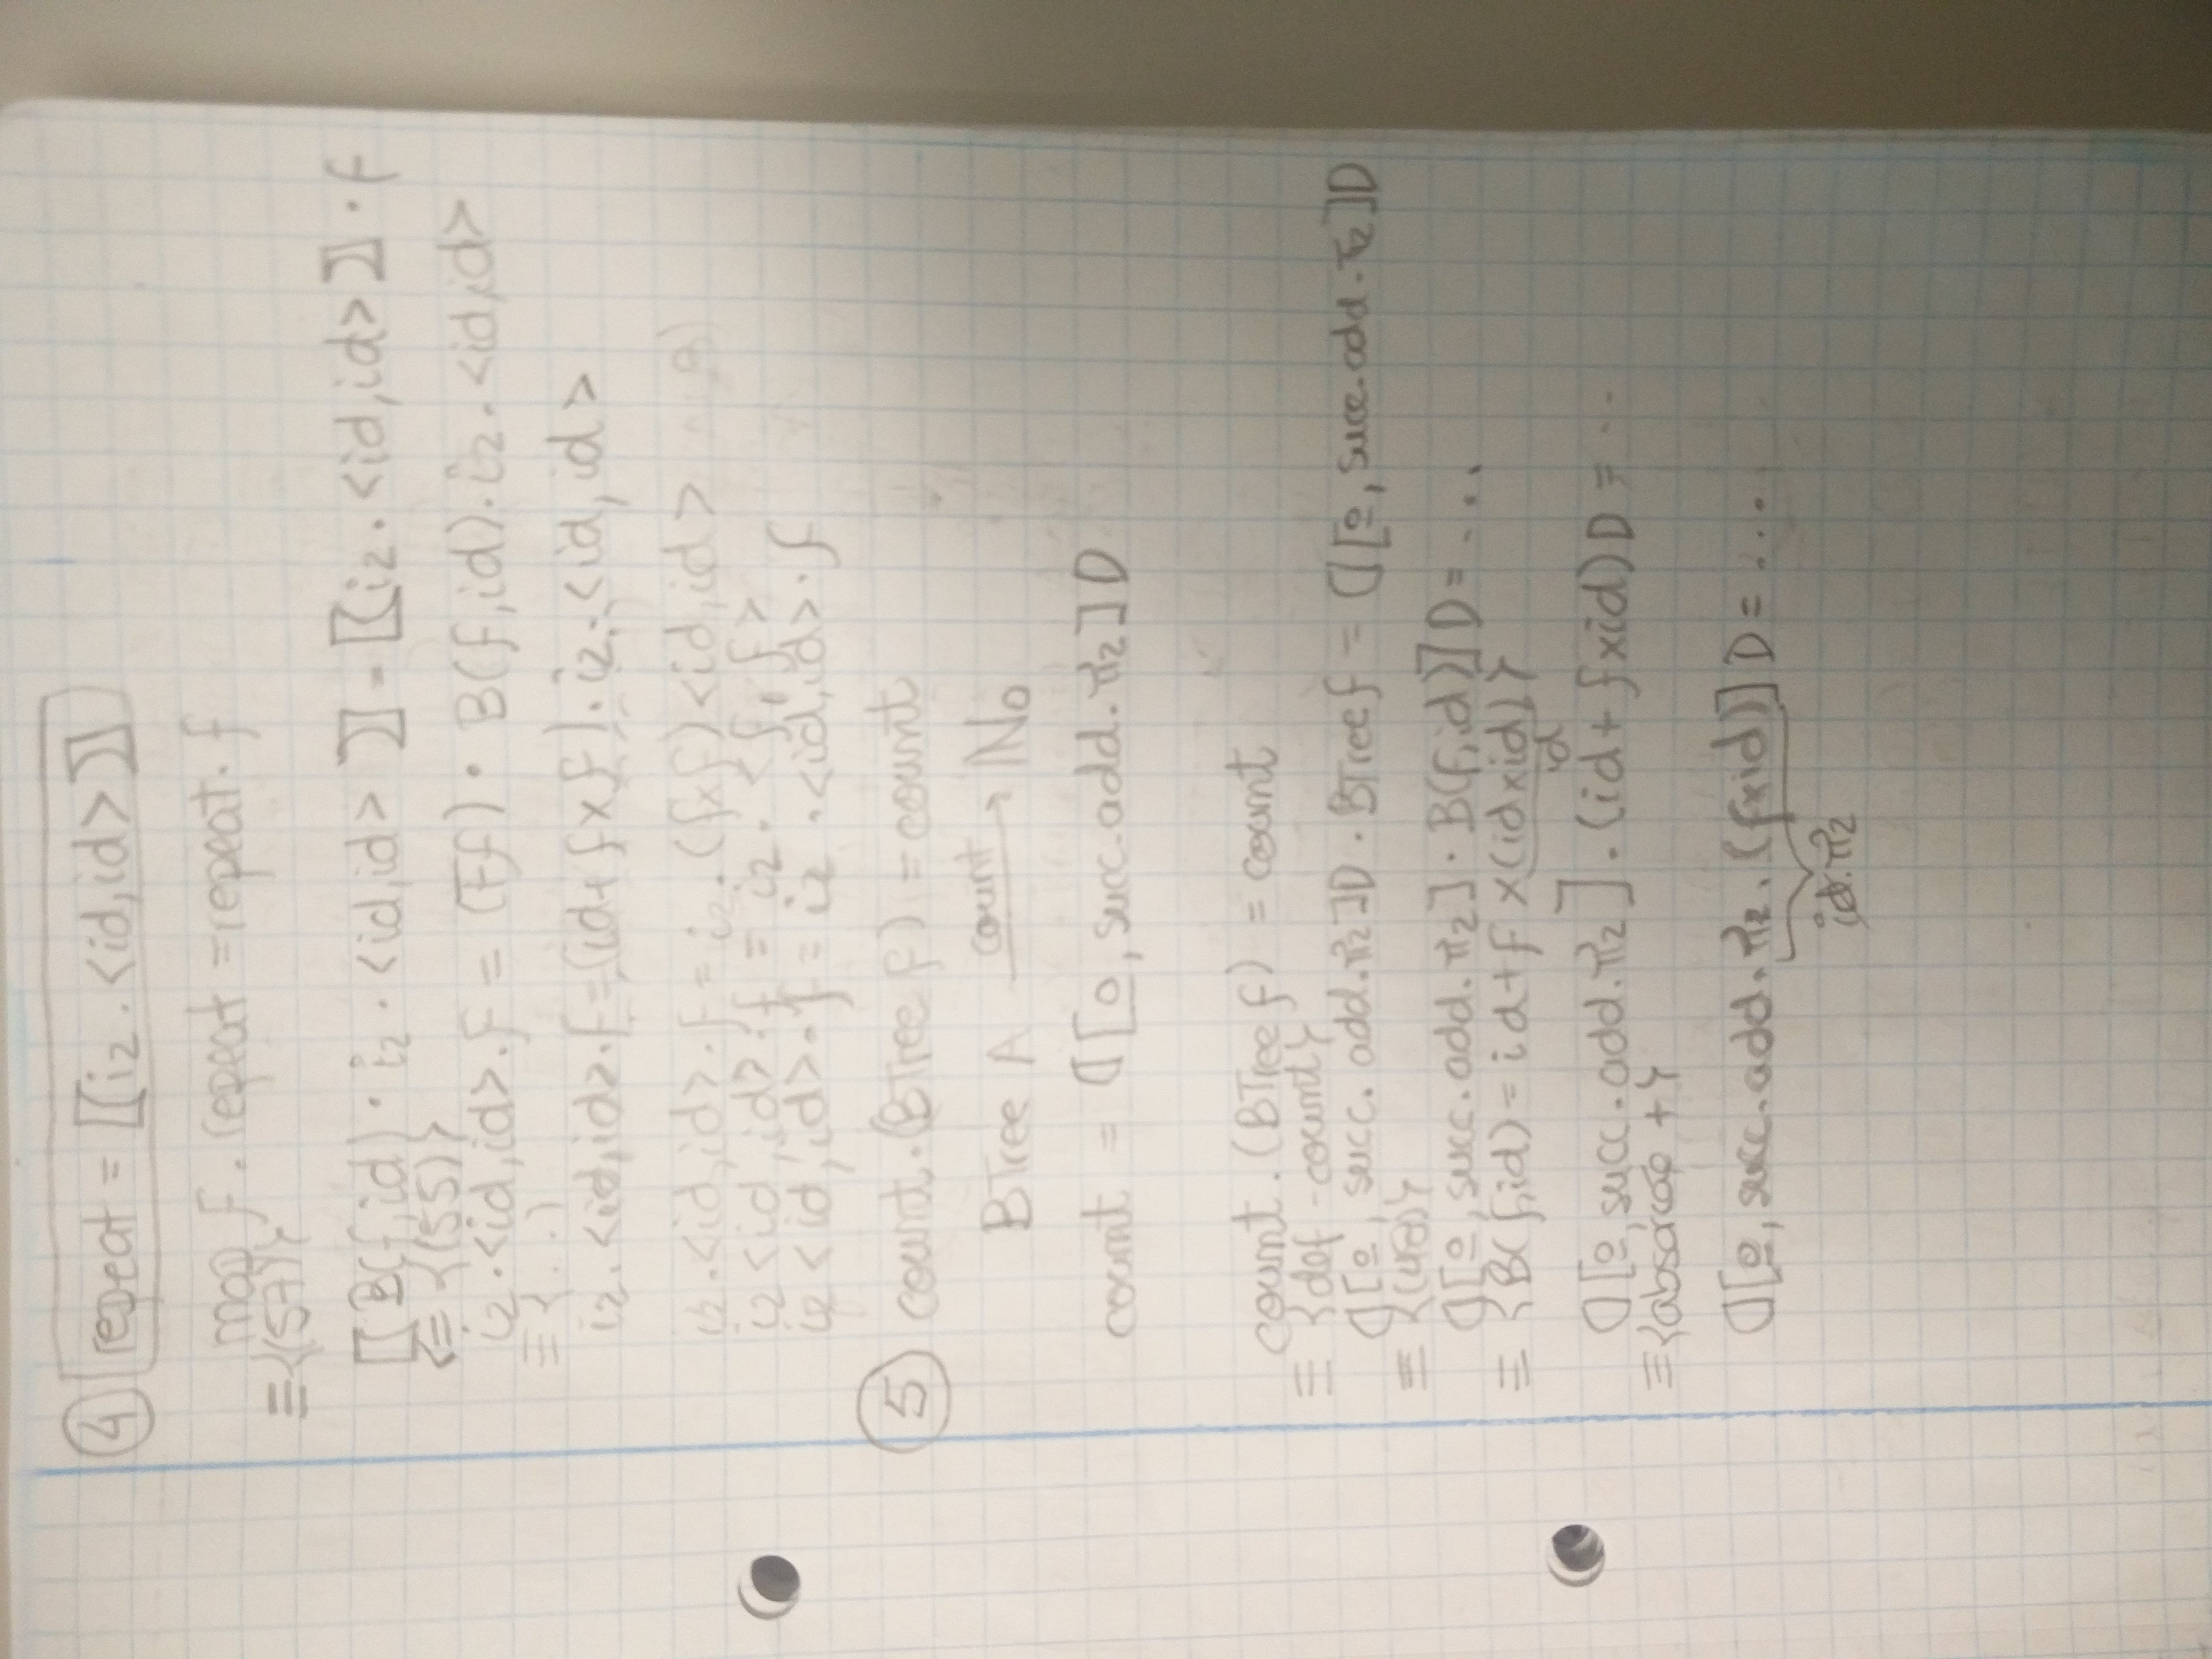 ④ repeat = 〚i₂ . <id,id>〛
map f . repeat = repeat . f
≡ {(57)}
〚B(f,id) · i₂ . <id,id>〛 = 〚i₂ . <id,id>〛 · f
<= {(55)}
i₂ . <id,id> . f = (Ff) · B(f,id) . i₂ . <id,id>
≡ {...}
i₂ . <id,id> . f = (id + f×f) . i₂ . <id,id>
i₂ . <id,id> . f = i₂ . (f×f) <id,id>
i₂ <id,id> . f = i₂ . <f,f>
i₂ <id,id> . f = i₂ . <id,id> . f
⑤ count . (BTree f) = count
BTree A —count→ ℕ₀
count = ⦇[0̲, succ.add.π₂]⦈
count . (BTree f) = count
≡ {def-count}
⦇[0̲, succ.add.π₂]⦈ . BTree f = ⦇[0̲, succ.add.π₂]⦈
≡
⦇[0̲, succ.add.π₂] · B(f,id)]⦈ = ...
≡ {B(f,id) = id + f × (id×id)}
id
⦇[0̲, succ.add.π₂] . (id + f×id)⦈ = ..
≡ {absorção +}
⦇[0̲, succ.add.π₂ . (f×id)]⦈ = ...
id.π₂